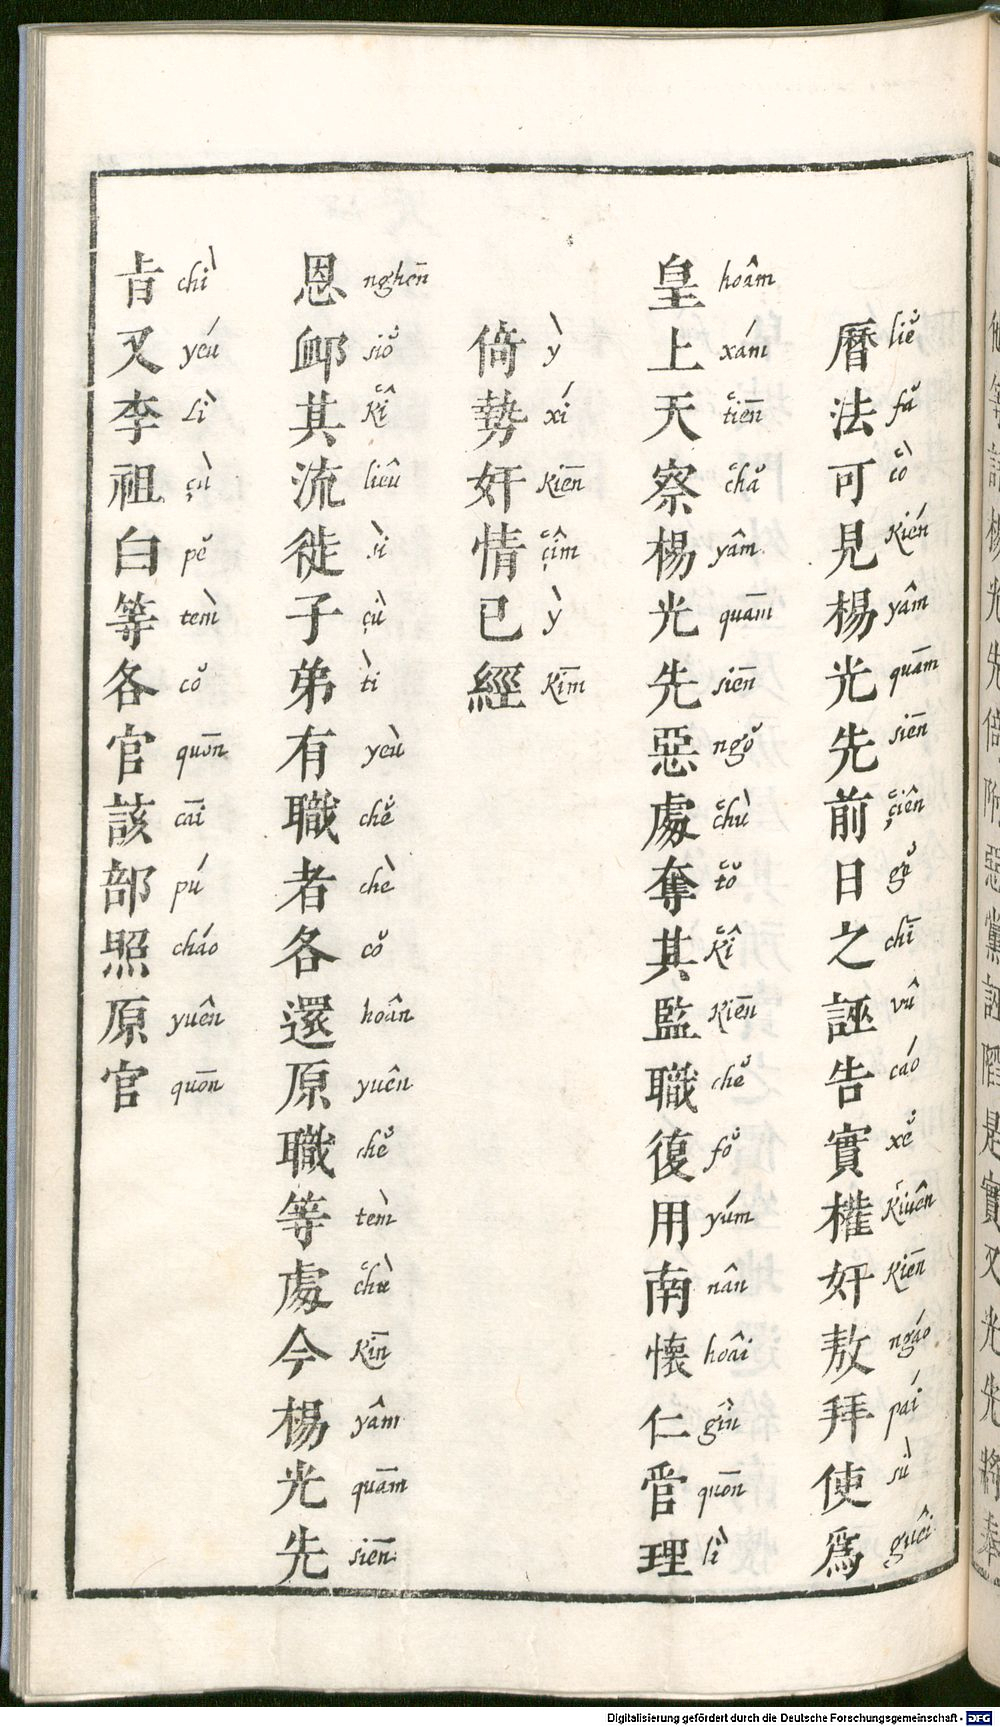 曆法可見楊光先前日之誣告實權奸敖拜使為
liĕ fă cò kién yâm quām siēn çiên gĕ chī vû cáo xĕ kiuên kiēn ngáo pái sù guêi
皇上天察楊光先惡處奪其監職復用南懷仁管理
hoâm xám tiēn chă yâm quām siēn ngŏ chù tŏ kî kiēn chĕ fŏ yúm nân hoâi gîn quòn lì
倚勢奸情已經
ỳ xí kiēn çîm ỳ kīm
恩卹其流徙子弟有職者各還原職等處今楊光先
nghēn siŏ kî liêu sì çù tì yeù chĕ chè cŏ hoân yuên chĕ tèm chù kīn yâm quām siēn
旨又李祖白等各官該部照原官
chì yéu lì çù pĕ tèm cŏ quōn cāi pú cháo yuên quōn
Digitalisierung gefördert durch die Deutsche Forschungsgemeinschaft - DFG